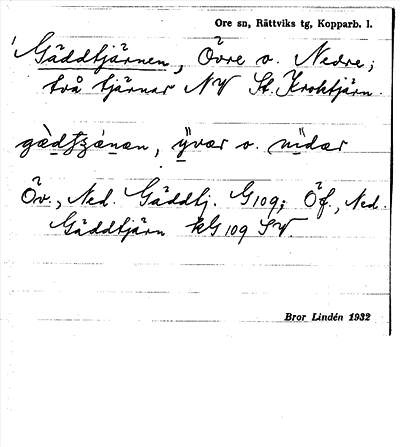 Ore sn, Rättviks tg, Kopparb. l.
Gäddtjärnen, Övre o. Nedre;
två tjärnar NV St. Kroktjärn.
yvær o. nidær
Öv., Ned. Gäddtj. G109; Öf., Ned.
Gäddtjärn kG 109 SV.
Bror Lindén 1932